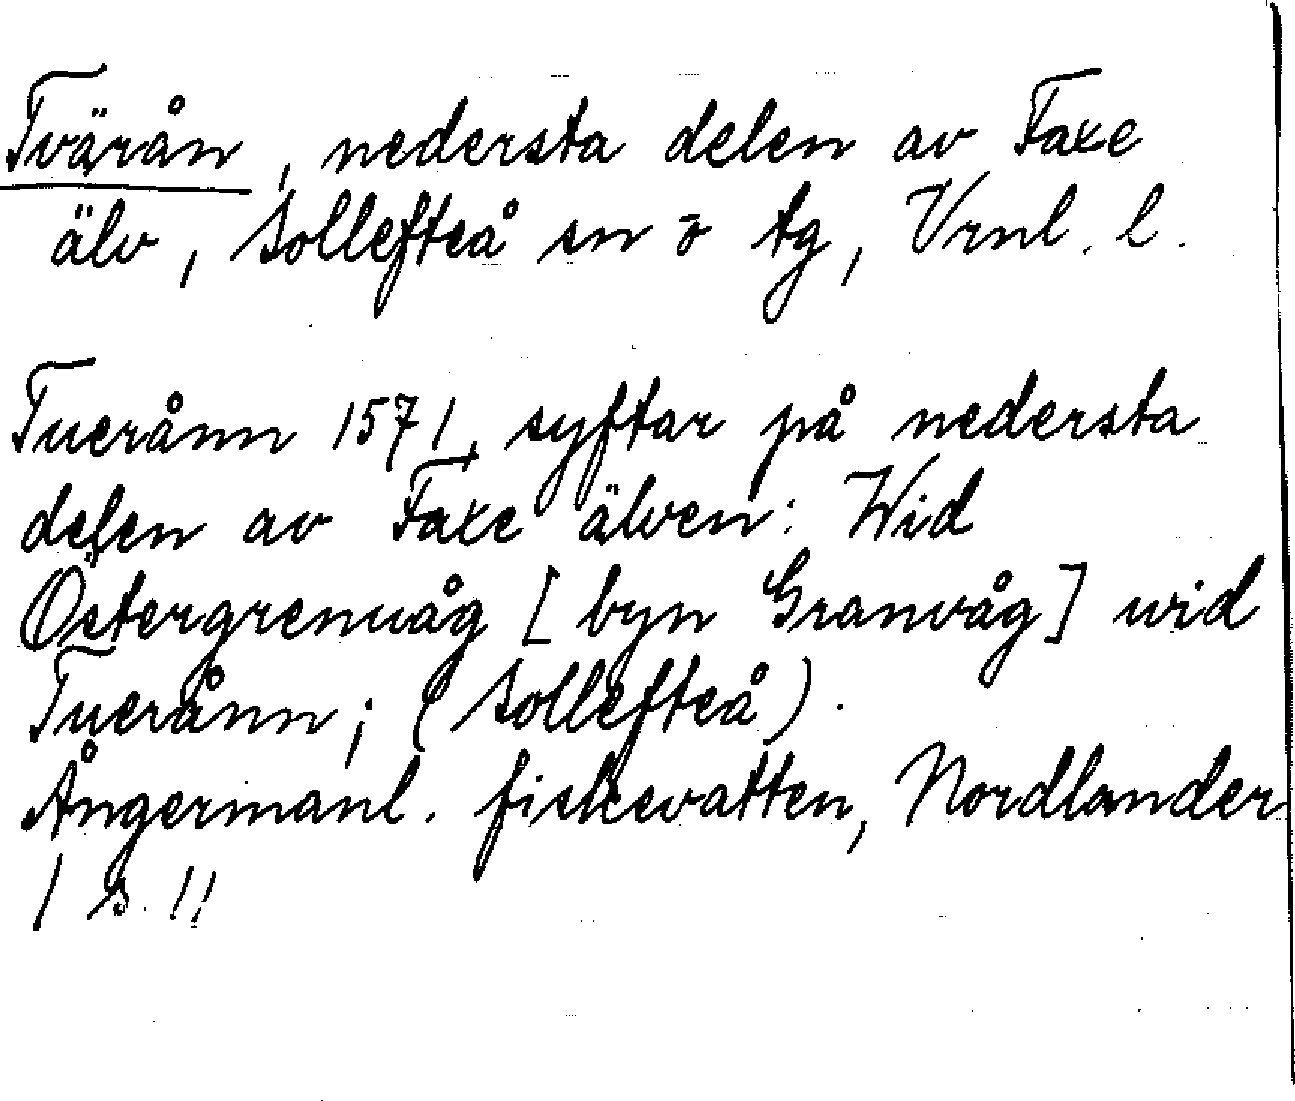 Tvärån, nedersta delen av Faxe
älv, Sollefteå sn o tg, Vrnl. l.
Tuerånn 1571, syftar på nedersta
delen av Faxe älven: Wid
Östergrenuåg [byn Granvåg] wid
Tuerånn; (Sollefteå).
Ångermanl. fiskevatten, Nordlander
1 s. 11